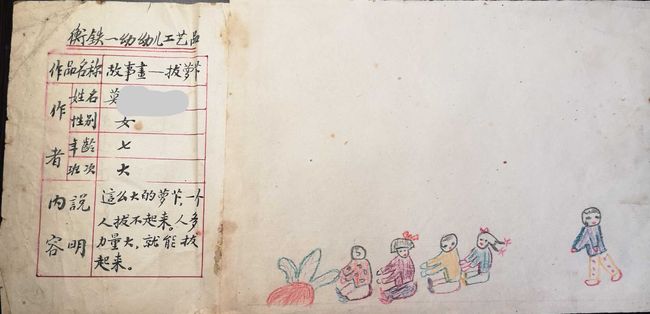 衡铁一幼幼儿工艺品
作品名称 故事畫—拔萝卜
作者 姓名 莫
性别 女
年龄 七
班次 大
内容説明 這么大的萝卜,一个
人拔不起来。人多
力量大,就能拔
起来。